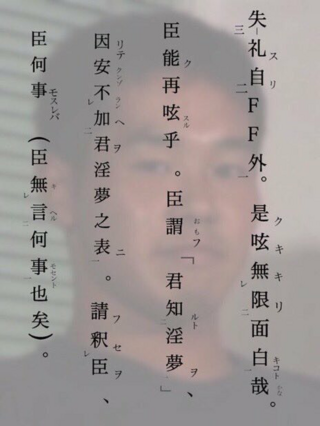 失礼自FF外。是呟無限面白哉。
臣能再呟乎。臣謂「君知淫夢」、
因安不加君淫夢之表。請釈臣、
臣何事(臣無言何事也矣)。